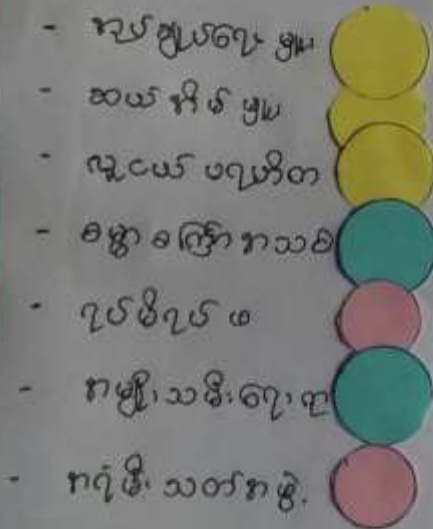 - အုပ်ချုပ်ရေးမှူး
- ဆယ်အိမ်မှူး
- လူငယ် ပရဟိတ
- စမ္ပာ စကြာ အသစ်
- ရပ်မိရပ်ဖ
- အမျိုးသမီးရေးရာ
- အရံမီးသတ်အဖွဲ့.